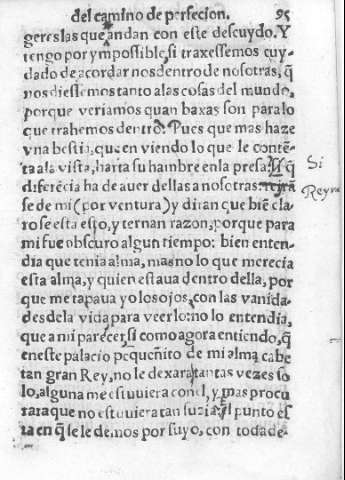 del camino de perfecion. 95
geres las que andan con este descuydo. Y
tengo por ympossible, si traxessemos cuy-
dado de acordarnos dentro de nosotras, q̃
nos diessemos tanto a las cosas del mundo,
porque veriamos quan baxas son para lo
que trahemos dentro. Pues que mas haze
vna bestia, que en viendo lo que le contẽ-
ta a la vista, harta su hambre en la presa: si q̃ Si
diferẽcia ha de auer dellas a nosotras. reyrã Reyrã
se de mi (por ventura) y diran que biẽ cla-
ro se esta esto, y ternan razon, porque para
mi fue obscuro algun tiempo: bien enten-
dia que tenia alma, mas no lo que merecia
esta alma, y quien estaua dentro della, por
que me tapaua yo los ojos, con las vanida-
des de la vida para veerlo: no lo entendia,
que a mi parecer, si como agora entiendo, q̃
en este palacio pequeñito de mi alma cabe
tan gran Rey, no le dexara tantas vezes so
lo, alguna me estuuiera con el, y mas procu
rara que no estouiera tan suzia. el punto es
ta en q̃ se le demos por suyo, con toda de-